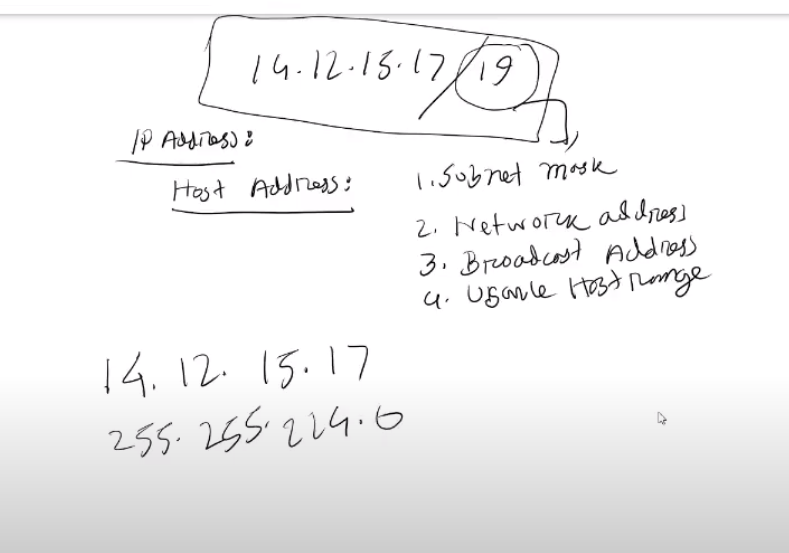 14.12.15.17/19
IP Address:
Host Address:
1. Subnet mask
2. Network address
3. Broadcast Address
4. Usable Host Range
14.12.15.17
255.255.224.0